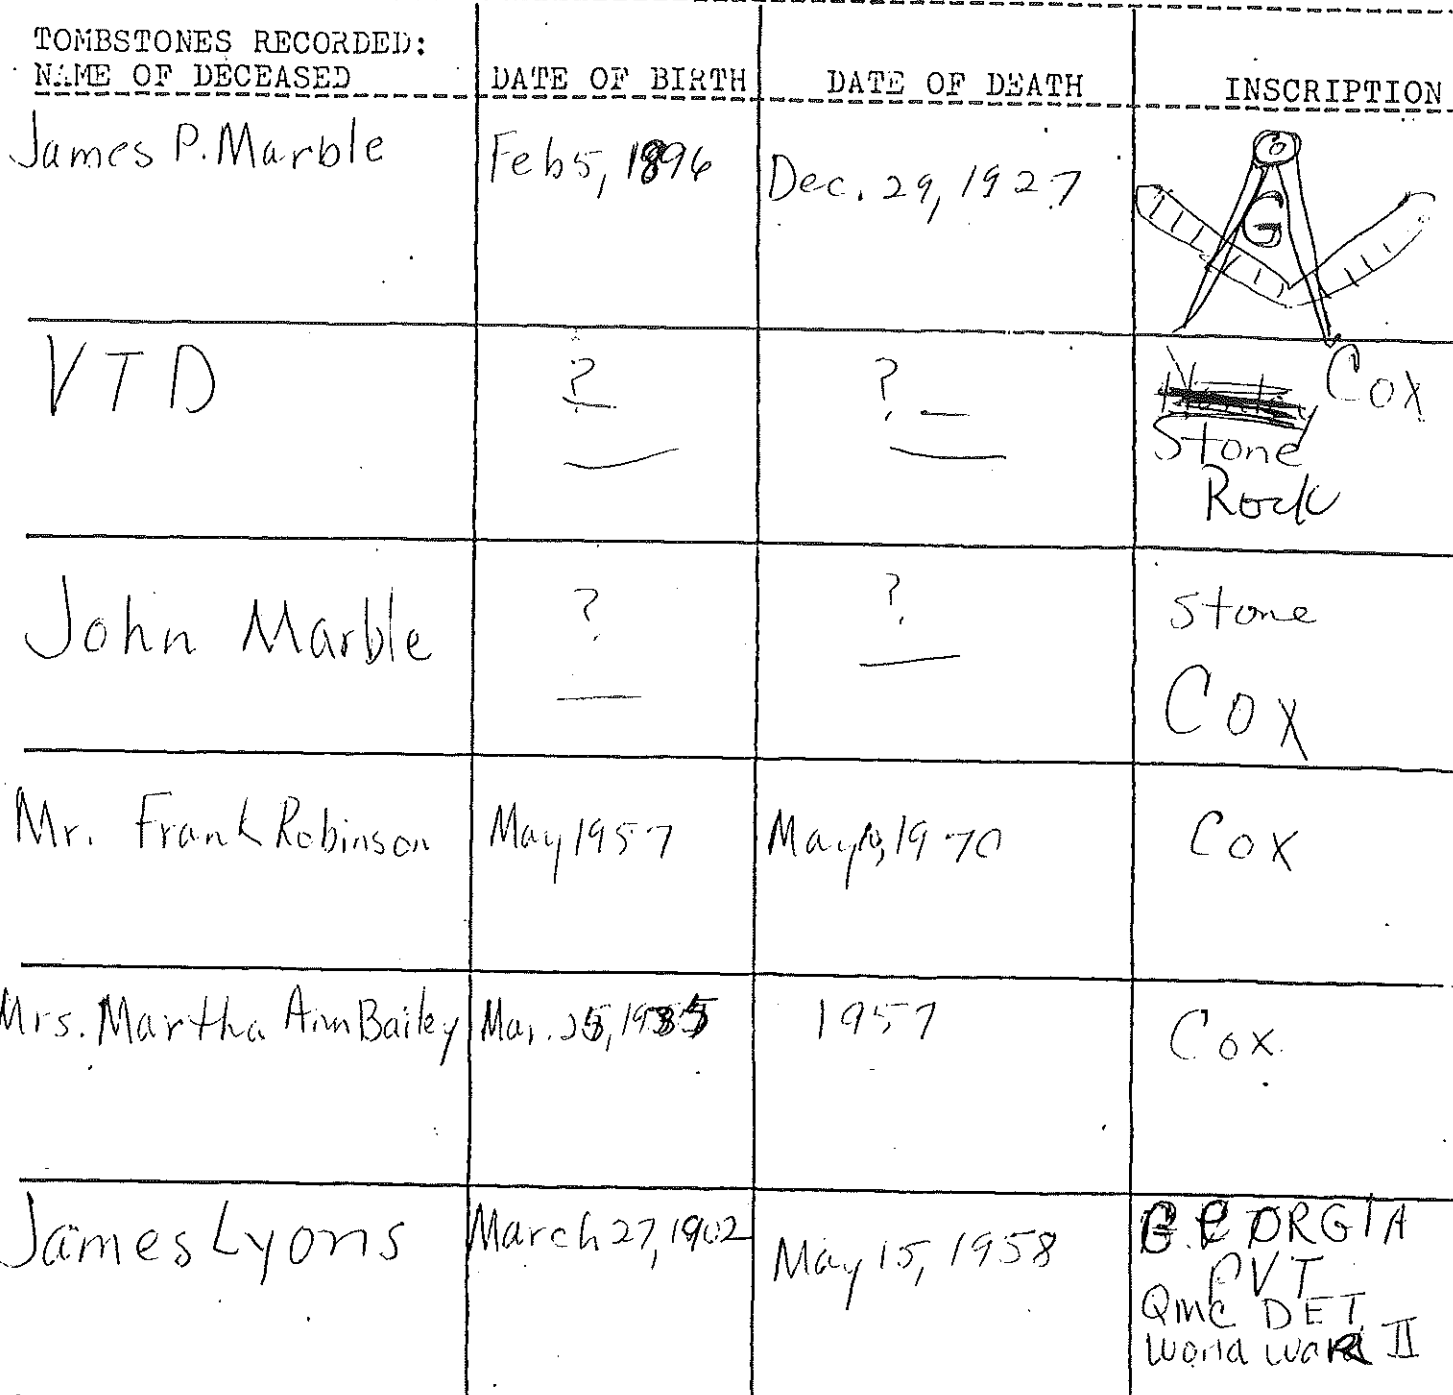 TOMBSTONES RECORDED:
NAME OF DECEASED DATE OF BIRTH DATE OF DEATH INSCRIPTION
James P. Marble Feb 5, 1896 Dec. 29, 1927 G
VTD ? ? Cox
Stone
Rock
John Marble ? ? Stone
Cox
Mr. Frank Robinson May 1957 May 1970 Cox
Mrs. Martha Ann Bailey Mar. 1957 Cox
James Lyons March 27, 1902 May 15, 1958 GEORGIA
PVT
QMC DET
World WaR II